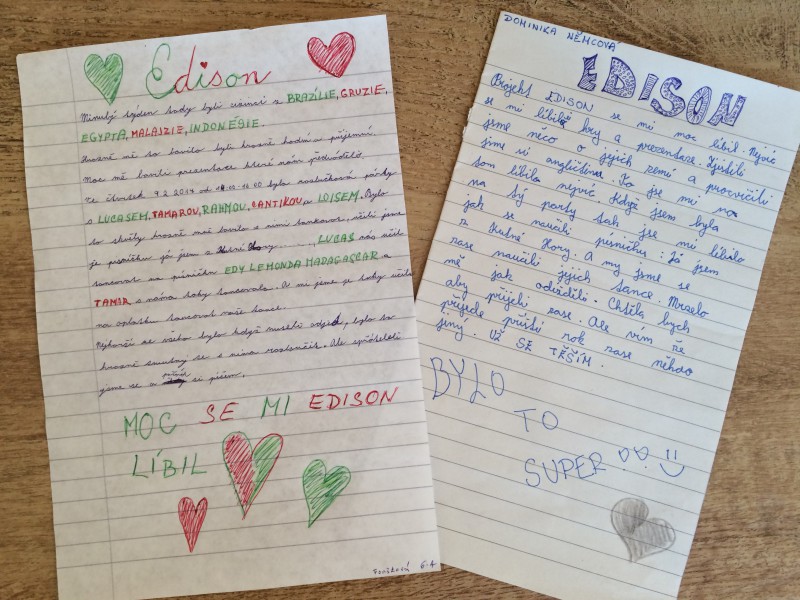 Edison
Minulý týden tady byli učitelé z BRAZÍLIE, GRUZIE,
EGYPTA, MALAJZIE, INDONÉSIE.
Hrozně mě to bavilo bylo hrozně hodní a příjemní.
Moc mě bavila prezentace které nám předvedli.
Ve čtvrtek 9.2.2017 od byla rozlučková párty
s LUCASEM, TAMAROU, RAHMOU, CANTIKOU a LOISEM. Bylo
to skvělý hrozně mě bavilo s nimi tankovat, učili jsme
je písničku já jsem z Kutné Hory LUCAS nás učil
tancovat na písničku EDY LEMONDA MADAGASCAR a
TAMIR s náma taky tancovala. A mi jsme je taky učili
na oplátku tancovat naše tance.
Nejhorší ze všeho bylo když museli odjed, bylo to
hrozně smutný se s nima rozloučit. Ale spřátelili
jsme se a si píšem.
MOC SE MI EDISON
LÍBIL
6.A
DOMINIKA NĚMCOVÁ
EDISON
Projekt EDISON se mi moc líbil. Nejvíc
se mi líbily hry a prezentace. Zjistili
jsme něco o jejich zemi a procvičili
jsme si angličtinu. To jse mi na
tom líbilo nejvíc. Když jsem byla
na tý party tak jse mi líbilo
jak se naučili písničku: Já jsem
z Kutné Hory. A my jsme se
zase naučili jejich tance. Mrzelo
mě jak odížděli. Chtěla bych
aby přijeli zase. Ale vím že
přijede příští rok zase někdo
jiný. UŽ SE TĚŠÍM.
BYLO
TO
SUPER